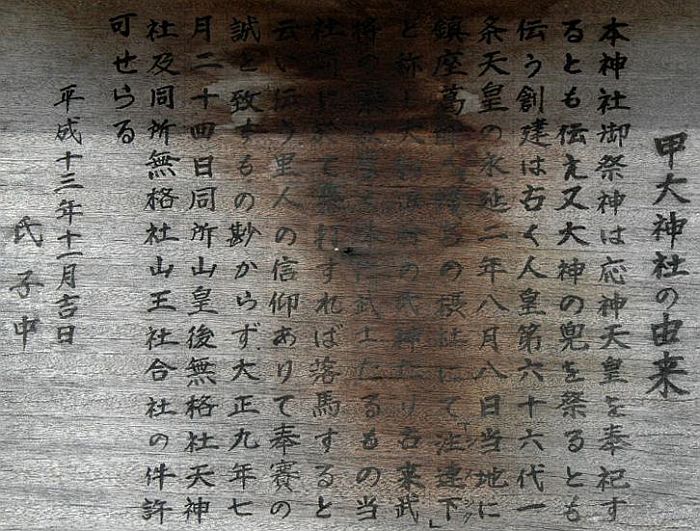 甲大神社の由来
本神社御祭神は応神天皇を奉祀す
るとも伝え又大神の兜を祭るとも
伝う創建は古く人皇第六十六代一
条天皇の永延二年八月八日当地に
鎮座葛 の摂社にて「注連下」
と称し の氏神たり古来武
将の 武士たるもの当
社前に於て乗打すれば落馬すると
云い伝う里人の信仰ありて奉賽の
誠を致すもの尠からず大正九年七
月二十四日同所山皇後無格社天神
社及同所無格社山王社合社の件許
可せらる
平成十三年十一月吉日
氏子中